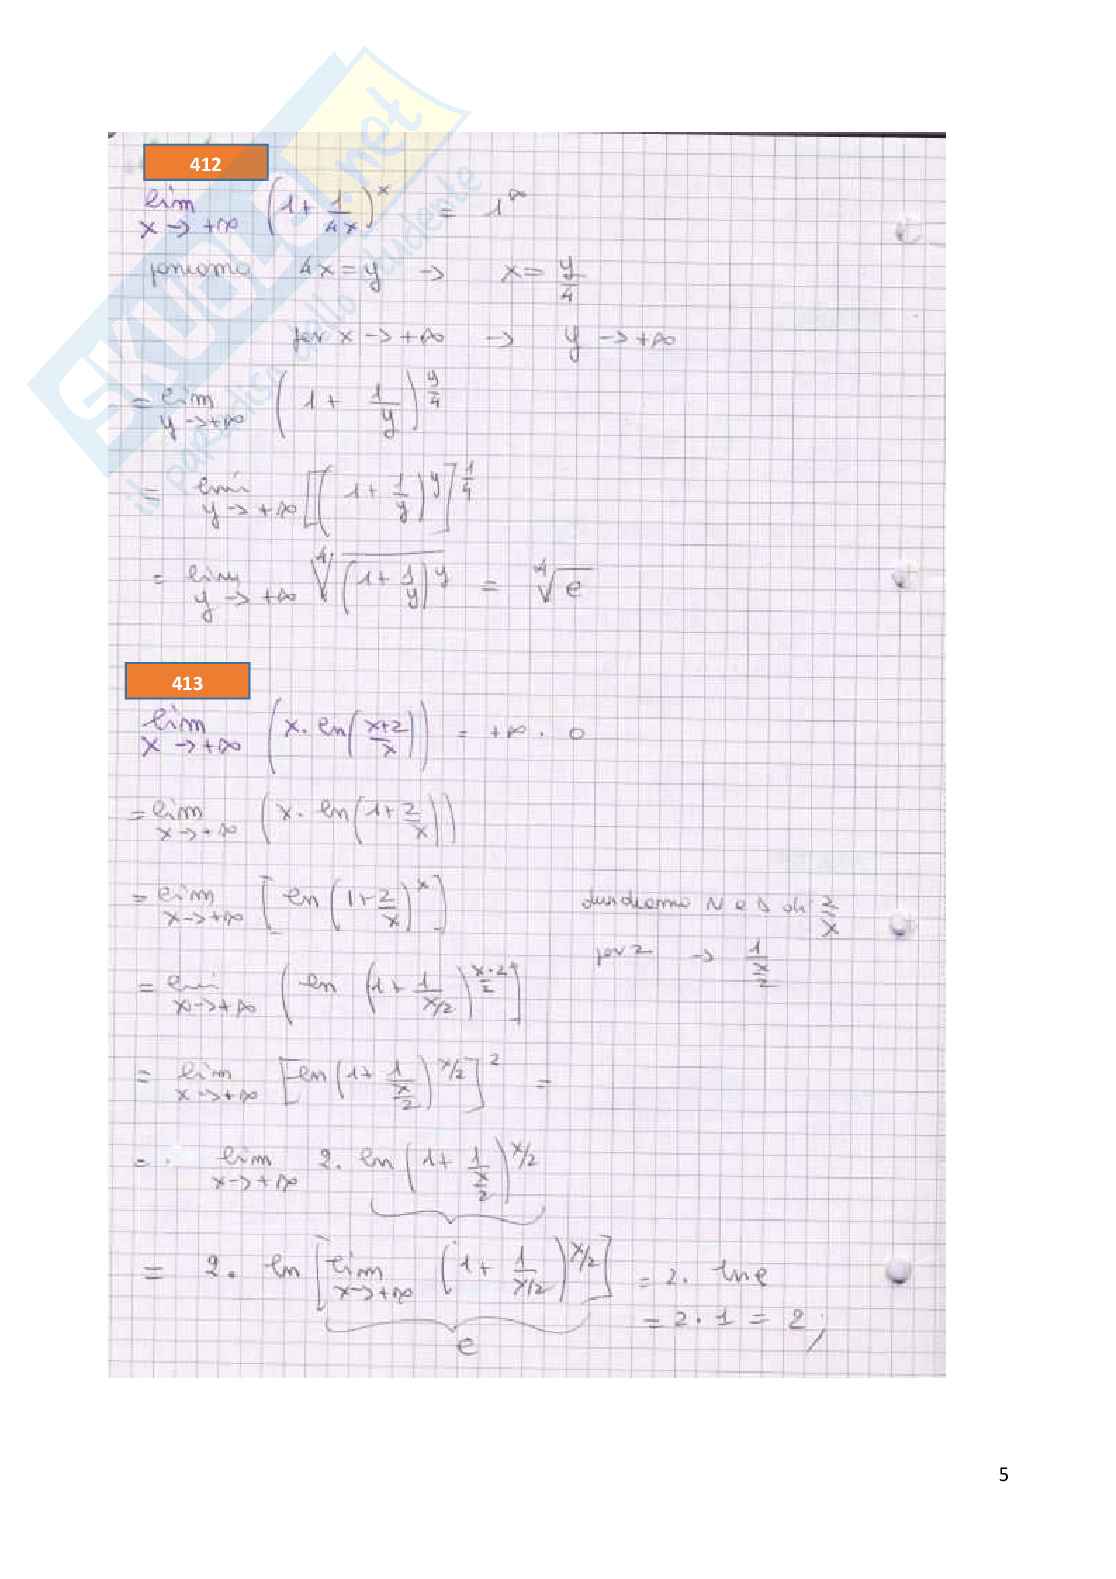 SKUOLA.net
il paradiso dello studente
412
lim x→+∞ (1 + 1/4x)^x = 1^∞
poniamo 4x = y → x = y/4
per x → +∞ → y → +∞
= lim y→+∞ (1 + 1/y)^(y/4)
= lim y→+∞ [(1 + 1/y)^y]^(1/4)
= lim y→+∞ ∜(1 + 1/y)^y = ∜e
413
lim x→+∞ (x · ln((x+2)/x)) = +∞ · 0
= lim x→+∞ (x · ln(1 + 2/x))
= lim x→+∞ [ln(1 + 2/x)^x] dividiamo N e D di 2/x
per 2 → 1/(x/2)
= lim x→+∞ (ln (1 + 1/(x/2))^(x·2/2)]
= lim x→+∞ [ln(1 + 1/(x/2))^(x/2)]^2 =
= lim x→+∞ 2 · ln(1 + 1/(x/2))^(x/2)
= 2 · ln [lim x→+∞ (1 + 1/(x/2))^(x/2)] = 2 · ln e
= 2 · 1 = 2;
e
5